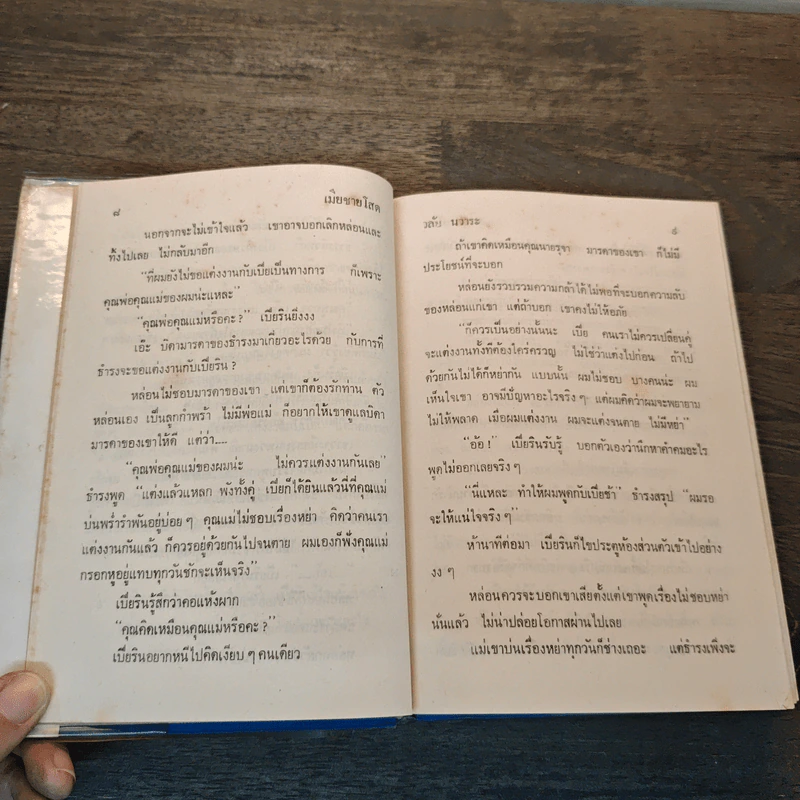 ๘
เมียชายโสด
นอกจากจะไม่เข้าใจแล้ว เขาอาจบอกเลิกหล่อนและ
ทิ้งไปเลย ไม่กลับมาอีก
“ที่ผมยังไม่ขอแต่งงานกับเบียเป็นทางการ ก็เพราะ
คุณพ่อคุณแม่ของผมน่ะแหละ”
“คุณพ่อคุณแม่หรือคะ?” เบียรินยิ่งงง
เอ๊ะ บิดามารดาของธำรงมาเกี่ยวอะไรด้วย กับการที่
ธำรงจะขอแต่งงานกับเบียริน?
หล่อนไม่ชอบมารดาของเขา แต่เขาก็ต้องรักท่าน ตัว
หล่อนเอง เป็นลูกกำพร้า ไม่มีพ่อแม่ ก็อยากให้เขาดูแลบิดา
มารดาของเขาให้ดี แต่ว่า....
“คุณพ่อคุณแม่ของผมน่ะ ไม่ควรแต่งงานกันเลย”
ธำรงพูด “แต่งแล้วแหลก พังทั้งคู่ เบียก็ได้ยินแล้วนี่ที่คุณแม่
บ่นพร่ำรำพันอยู่บ่อย ๆ คุณแม่ไม่ชอบเรื่องหย่า คิดว่าคนเรา
แต่งงานกันแล้ว ก็ควรอยู่ด้วยกันไปจนตาย ผมเองก็ฟังคุณแม่
กรอกหูอยู่แทบทุกวันชักจะเห็นจริง”
เบียรินรู้สึกว่าคอแห้งผาก
“คุณคิดเหมือนคุณแม่หรือคะ?”
เบียรินอยากหนีไปคิดเงียบ ๆ คนเดียว
วลัย นวาระ
๙
ถ้าเขาคิดเหมือนคุณนายรุจา มารดาของเขา ก็ไม่มี
ประโยชน์ที่จะบอก
หล่อนยังรวบรวมความกล้าได้ไม่พอที่จะบอกความลับ
ของหล่อนแก่เขา แต่ถ้าบอก เขาคงไม่ให้อภัย
“ก็ควรเป็นอย่างนั้นนะ เบีย คนเราไม่ควรเปลี่ยนคู่
จะแต่งงานทั้งทีต้องใคร่ครวญ ไม่ใช่ว่าแต่งไปก่อน ถ้าไป
ด้วยกันไม่ได้ก็หย่ากัน แบบนั้น ผมไม่ชอบ บางคนน่ะ ผม
เห็นใจเขา อาจมีปัญหาอะไรจริง ๆ แต่ผมคิดว่าผมจะพยายาม
ไม่ให้พลาด เมื่อผมแต่งงาน ผมจะแต่งจนตาย ไม่มีหย่า”
“อ้อ!” เบียรินรับรู้ บอกตัวเองว่านึกหาคำคมอะไร
พูดไม่ออกเลยจริง ๆ
“นี่แหละ ทำให้ผมพูดกับเบียช้า” ธำรงสรุป “ผมรอ
จะให้แน่ใจจริง ๆ”
ห้านาทีต่อมา เบียรินก็ไขประตูห้องส่วนตัวเข้าไปอย่าง
งง ๆ
หล่อนควรจะบอกเขาเสียตั้งแต่เขาพูดเรื่องไม่ชอบหย่า
นั่นแล้ว ไม่น่าปล่อยโอกาสผ่านไปเลย
แม่เขาบ่นเรื่องหย่าทุกวันก็ช่างเถอะ แต่ธำรงเพิ่งจะ